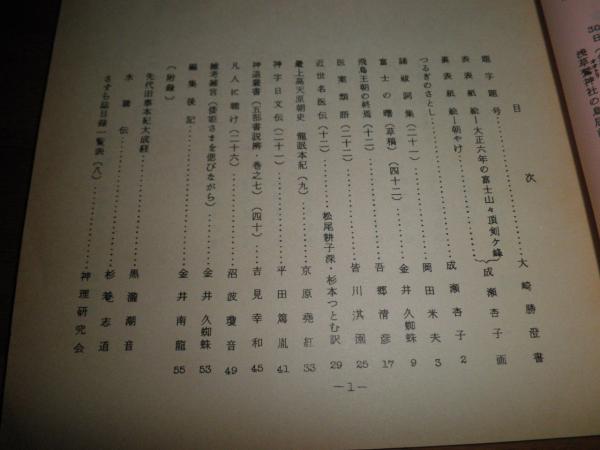 目次
題字題号………大崎勝澄書
表表紙絵―大正六年の富士山々頂剣ケ峰
裏表紙絵―朝やけ………成瀬杏子画
つるぎのさとし………成瀬杏子 2
諸祓詞集(二十一)………岡田米夫 3
富士の曙(草稿)(四十二)………金井久蜘蛛 9
飛鳥王朝の終焉(十二)………吾郷清彦 17
医案類語(二十二)………皆川淇園 25
近世名医伝(十二)………松尾耕子深・杉本つとむ訳 29
最上高天原朝史 龍眠本紀(九)………京原堯紅 33
神字日文伝(二十一)………平田篤胤 41
神道叢書(五部書説辨・巻之七)(四十)………吉見幸和 45
凡人に聴け(二十六)………沼波瓊音 49
編集後記………金井南龍 55
(附録)
先代旧事本紀大成経………黒瀧潮音
水鏡伝………杉菴志道
さすら誌目録一覧表(八)………神理研究会
—1—
30
日
浅草鷲神社の鳥居